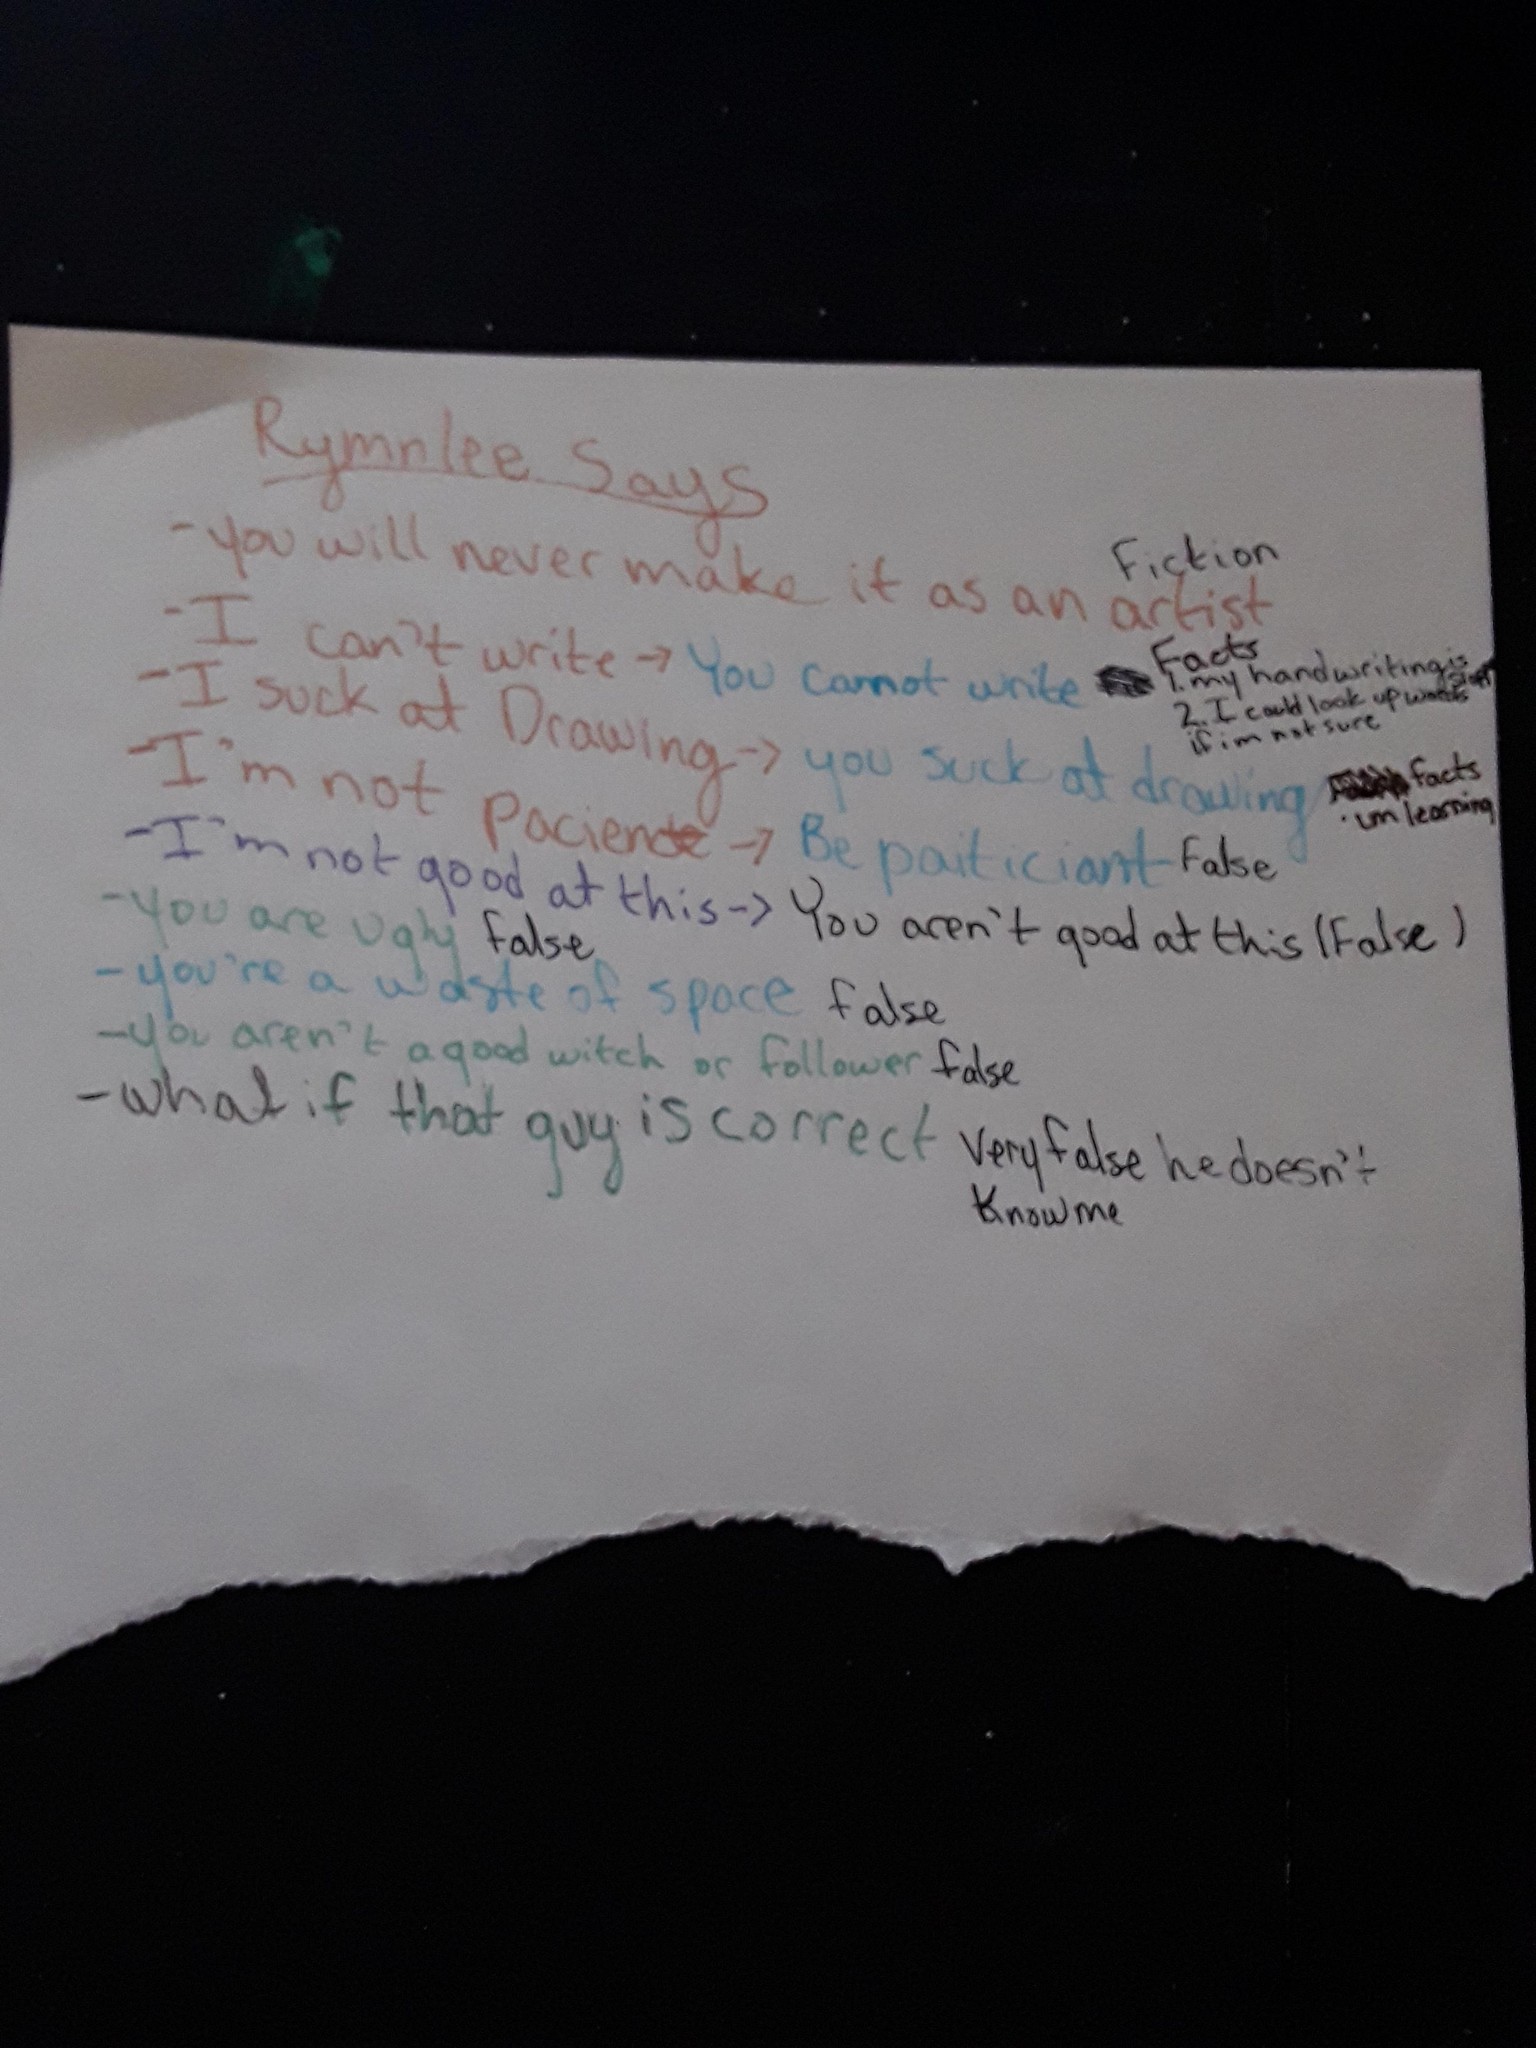 Rymnlee Says
- you will never make it as an artist Fiction
- I can't write → You cannot write Facts
1. my handwriting is
2. I could look up words
if im not sure
- I suck at Drawing → you suck at drawing facts
· um learning
- I'm not pacient → Be paiticiant False
- I'm not good at this → You aren't good at this (False)
- you are ugly false
- you're a waste of space false
- you aren't a good witch or follower false
- what if that guy is correct very false he doesn't
know me